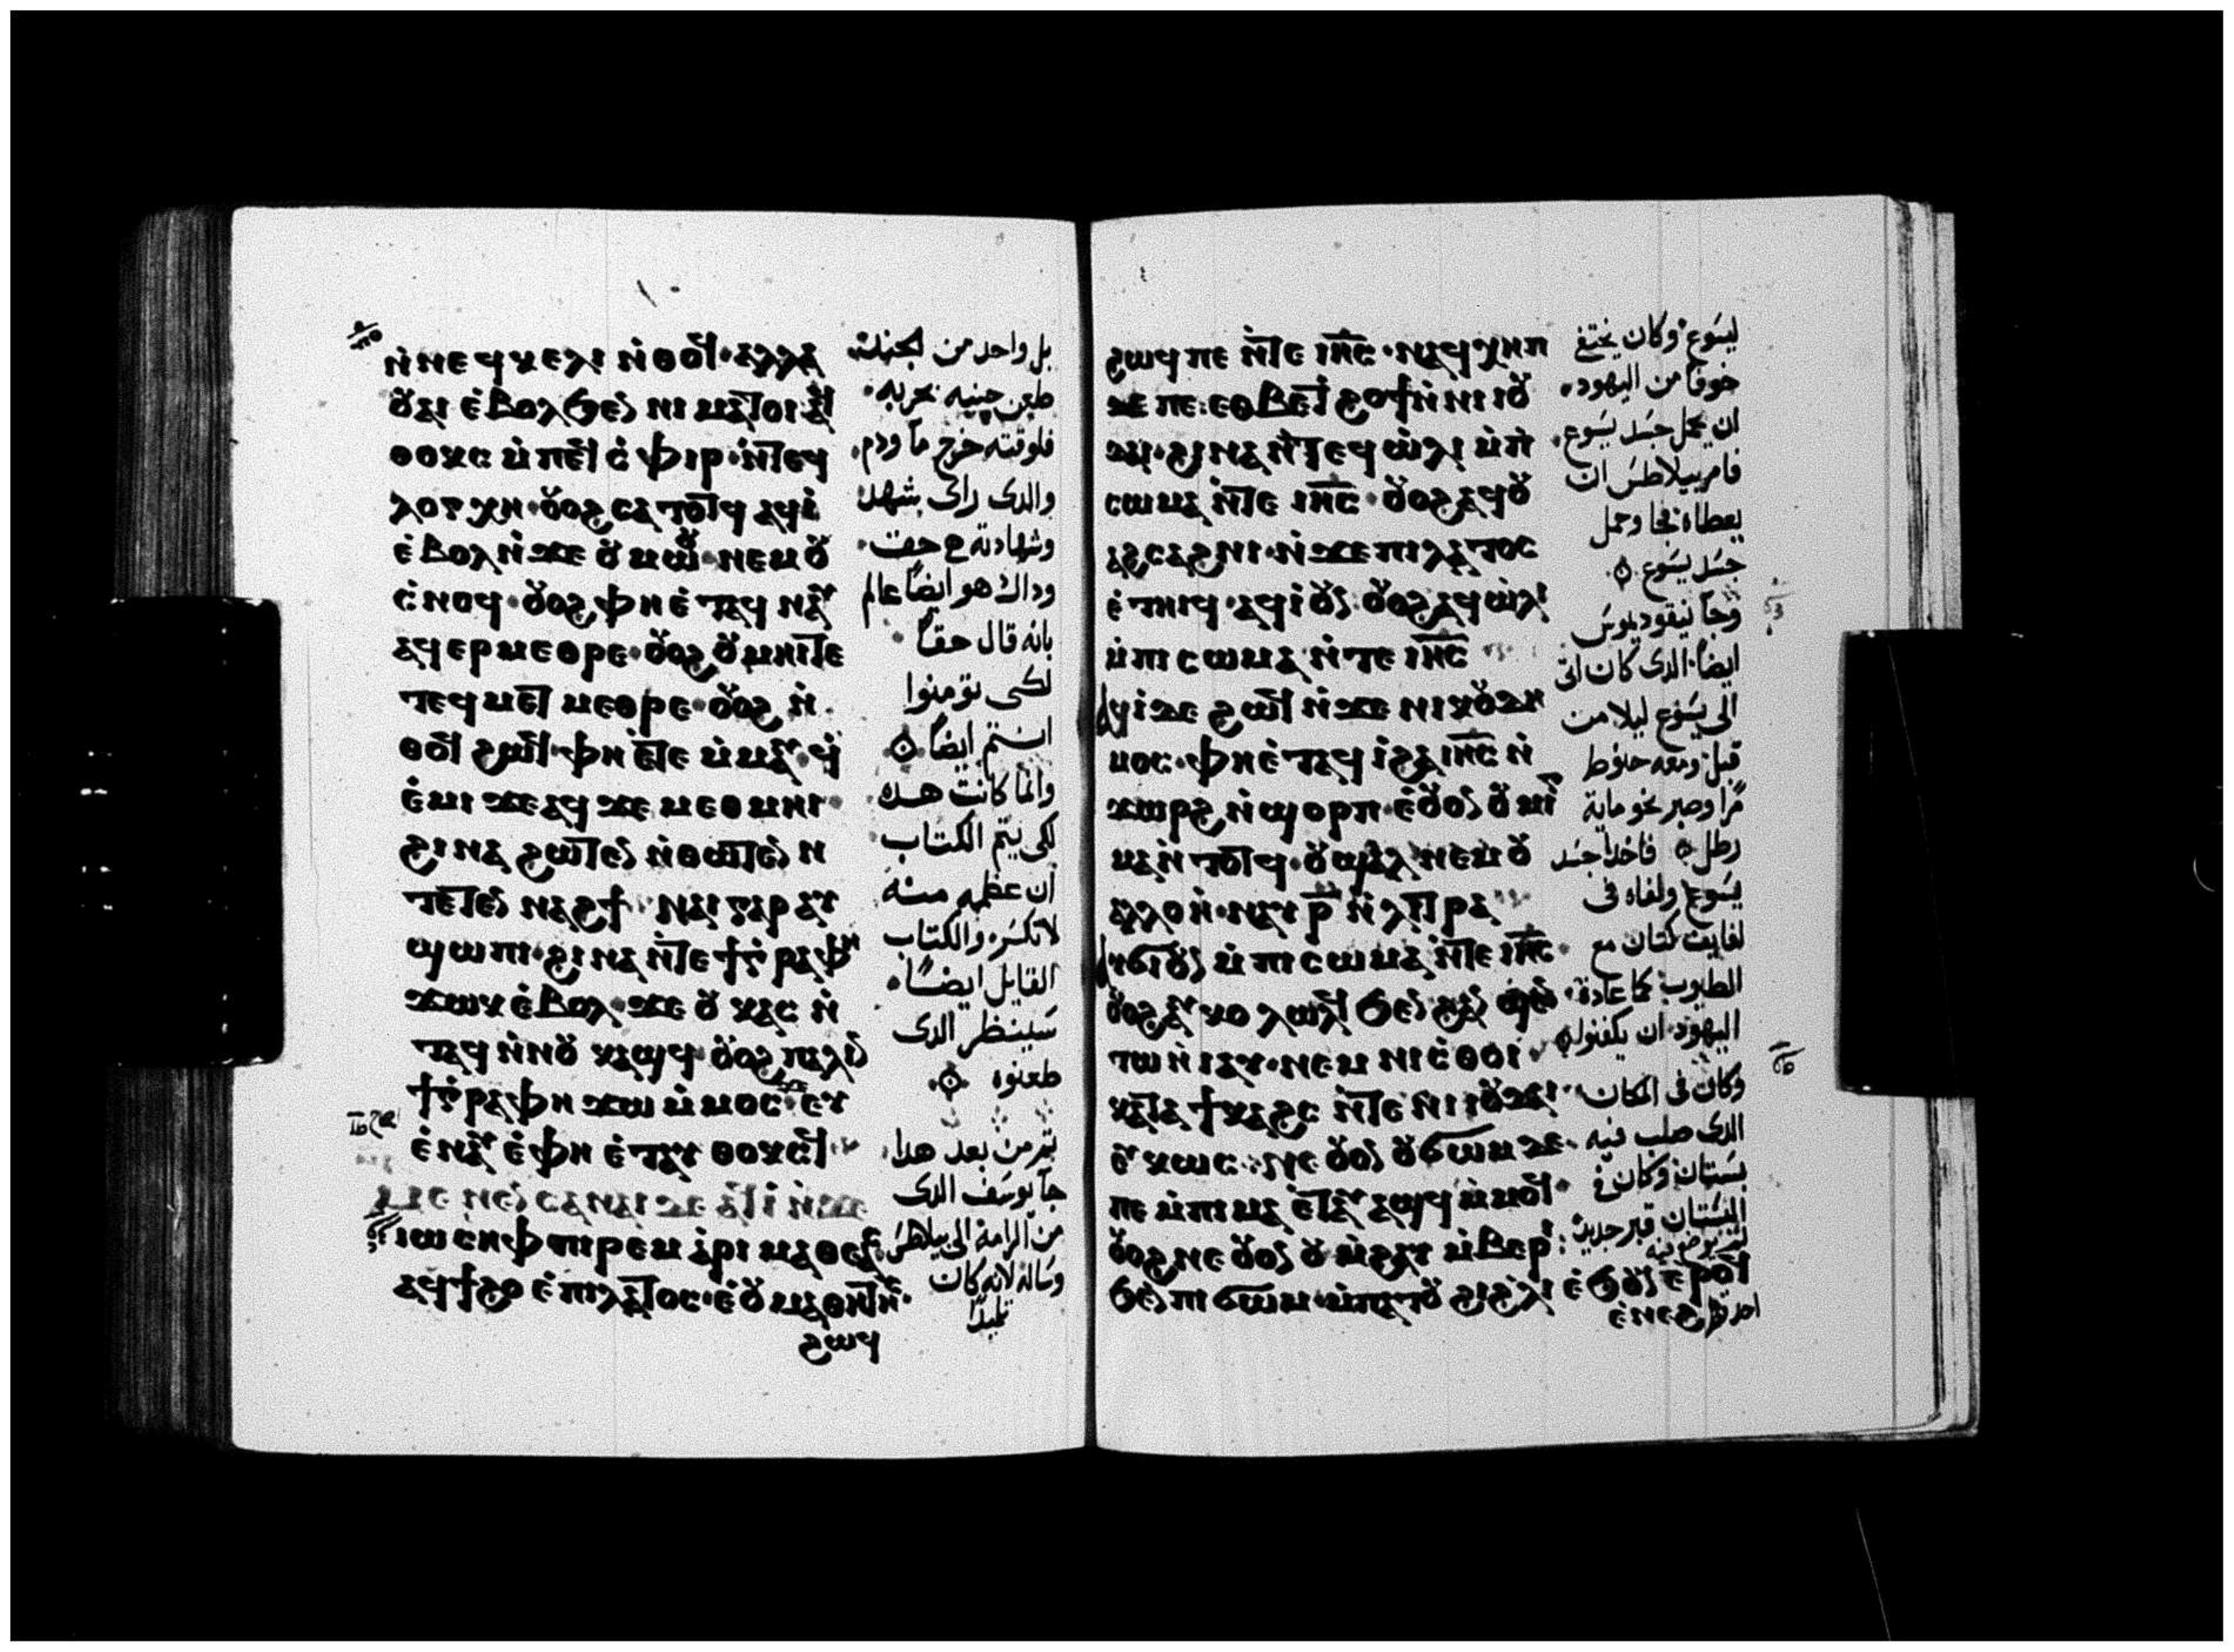 ⲛ̀ⲛⲉϥⲕⲉⲗⲓ ⲛ̀ⲑⲟϥ· ⲁⲗⲗⲁ
ⲟⲩⲁⲓ ⲉ̀ⲃⲟⲗϧⲉⲛ ⲛⲓⲙⲁⲧⲟⲓ ⲁϥ
ⲑⲟⲩⲕⲥ ⲙ̀ⲡⲉϥⲥ̀ⲫⲓⲣ· ⲛ̀ⲧⲉϥ
ⲗⲟⲅⲭⲏ· ⲟⲩⲟϩ ⲥⲁⲧⲟⲧϥ ⲁϥⲓ̀
ⲉ̀ⲃⲟⲗ ⲛ̀ϫⲉ ⲟⲩⲙⲱⲟⲩ· ⲛⲉⲙ ⲟⲩ
ⲥ̀ⲛⲟϥ· ⲟⲩⲟϩ ⲫⲏ ⲉ̀ⲧⲁϥⲛⲁⲩ
ⲁϥⲉⲣⲙⲉⲑⲣⲉ· ⲟⲩⲟϩ ⲟⲩⲙⲏⲓ ⲧⲉ
ⲧⲉϥⲙⲉⲧⲙⲉⲑⲣⲉ· ⲟⲩⲟϩ ⲛ̀
ⲑⲟϥ ϩⲱϥ· ⲫⲏ ⲉ̀ⲧⲉ ⲙ̀ⲙⲁⲩ· ϥ̀
ⲉ̀ⲙⲓ ϫⲉ ⲁϥϫⲉ ⲙⲉⲑⲙⲏⲓ·
ϩⲓⲛⲁ ϩⲱⲧⲉⲛ ⲛ̀ⲑⲱⲧⲉⲛ ⲛ
ⲧⲉⲧⲉⲛ ⲛⲁϩϯ· ⲛⲁⲓ ⲅⲁⲣ ⲁⲩ
ϣⲱⲡⲓ· ϩⲓⲛⲁ ⲛ̀ⲧⲉ ϯⲅ̀ⲣⲁⲫⲏ
ϫⲱⲕ ⲉ̀ⲃⲟⲗ· ϫⲉ ⲟⲩⲕⲁⲥ ⲛ̀
ⲧⲁϥ ⲛ̀ⲛⲟⲩⲕⲁϣϥ· ⲟⲩⲟϩ ⲡⲁⲗⲓⲛ
ϯⲅ̀ⲣⲁⲫⲏ ϫⲱ ⲙ̀ⲙⲟⲥ· ϫⲉ ⲉⲩ
ⲉ̀ⲛⲁⲩ ⲉ̀ⲫⲏ ⲉ̀ⲧⲁⲩ ⲑⲟⲩⲕⲥϥ·
ⲙⲉⲛⲉⲛⲥⲁ ⲛⲁⲓ ⲇⲉ ⲁϥⲓ̀ ⲛ̀ϫⲉ
ⲓⲱⲥⲏⲫ ⲡⲓⲣⲉⲙ ⲁ̀ⲣⲓⲙⲁⲑⲉⲁⲥ
ⲁϥϯϩⲟ ⲉ̀ⲡⲓⲗⲁⲧⲟⲥ· ⲉ̀ⲟⲩⲙⲁⲑⲏⲧⲏⲥ·
ϩⲱϥ
بل واحد من الجند
طعن جنبه بحربه·
فلوقته خرج مآ ودم·
والدى راى شهد
وشهادته حق·
وداك هو ايضاً عالم
بانه قال حقاً
لكى تؤمنوا
انتم ايضاً
وانما كانت هده
لكى يتم الكتاب
ان عظم منه
لا تكسر· والكتاب
القايل ايضاً·
سينظر الدى
طعنوه
تم من بعد هدا·
جآ يوسف الدى
من الرامة الى بيلاطس
وساله لانه كان
تلميداً
ϩⲱϥ ⲡⲉ ⲛ̀ⲧⲉ ⲓⲏⲥ· ⲛⲁϥⲭⲏⲡ
ⲇⲉ ⲡⲉ· ⲉⲑⲃⲉ ⲧ̀ϩⲟϯ ⲛ̀ⲛⲓⲓⲟⲩ
ⲇⲁⲓ· ϩⲓⲛⲁ ⲛ̀ⲧⲉϥⲱ̀ⲗⲓ ⲙ̀ⲡⲓ
ⲥⲱⲙⲁ ⲛ̀ⲧⲉ ⲓⲏⲥ· ⲟⲩⲟϩ ⲁϥⲟⲩ
ⲁϩⲥⲁϩⲛⲓ· ⲛ̀ϫⲉ ⲡⲓⲗⲁⲧⲟⲥ
ⲉ̀ⲧⲏⲓϥ· ⲁϥⲓ̀ ⲟⲩⲛ ⲟⲩⲟϩ ⲁϥⲱ̀ⲗⲓ
ⲙ̀ⲡⲓⲥⲱⲙⲁ ⲛ̀ⲧⲉ ⲓⲏⲥ
ⲁϥⲓ̀ ⲇⲉ ϩⲱϥ ⲛ̀ϫⲉ ⲛⲓⲕⲟⲩⲇⲏ
ⲙⲟⲥ· ⲫⲏ ⲉ̀ⲧⲁϥⲓ̀ ϩⲁ ⲓⲏⲥ ⲛ̀
ϫⲱⲣϩ ⲛ̀ϣⲟⲣⲡ· ⲉ̀ⲟⲩⲟⲛ ⲟⲩⲙⲓⲅ
ⲙⲁ ⲛ̀ⲧⲟⲧϥ· ⲟⲩϣⲁⲗ ⲛⲉⲙ ⲟⲩ
ⲁⲗⲗⲟⲏ· ⲛⲁⲩ ⲣ̅ ⲛ̀ⲗⲩⲧⲣⲁ
ⲁⲩϭⲓ ⲟⲩⲛ ⲙ̀ⲡⲓⲥⲱⲙⲁ ⲛ̀ⲧⲉ ⲓⲏⲥ·
ⲟⲩⲟϩ ⲁⲩⲕⲟⲩⲗⲱⲗϥ ϧⲉⲛ ϩⲁⲛ
ⲧⲱ ⲛ̀ⲓⲁⲩ· ⲛⲉⲙ ⲛⲓⲥ̀ⲑⲟⲓ·
ⲕⲁⲧⲁ ϯⲕⲁϩⲥ ⲛ̀ⲧⲉ ⲛⲓⲓⲟⲩⲇⲁⲓ·
ⲉ̀ⲕⲱⲥ· ⲛⲉ ⲟⲩⲟⲛ ⲟⲩϭⲱⲙ ⲇⲉ·
ⲡⲉ ⲙ̀ⲡⲓⲙⲁ ⲉ̀ⲧⲁⲩⲁϣϥ ⲙ̀ⲙⲟϥ·
ⲟⲩⲟϩ ⲛⲉ ⲟⲩⲟⲛ ⲟⲩⲙ̀ϩⲁⲩ ⲙ̀ⲃⲉⲣⲓ·
ϧⲉⲛ ⲡⲓϭⲱⲙ· ⲙ̀ⲡⲁⲧⲟⲩ ϩⲓ ϩ̀ⲗⲓ ⲉ̀ϧⲟⲩⲛ ⲉ̀ⲣⲟϥ
ⲉ̀ⲛⲉϩ
ليسوع· وكان يختفى
خوفاً من اليهود·
ان يحمل جسد يسوع·
فامر بيلاطس ان
يعطاه· فجا وحمل
جسد يسوع
وجآ نيقوديموس
ايضاً· الدى كان اتى
الى يسوع ليلا من
قبل· ومعه حنوط
مراً وصبر نحو ماية
رطل فاخدا جسد
يسوع ولفاه فى
لفايف كتان مع
الطيوب· كما عادة
اليهود ان يكفنوا
وكان فى المكان
الدى صلب فيه
بستان وكان فى
البستان قبر جديد
لم يوضع فيه
احد قط